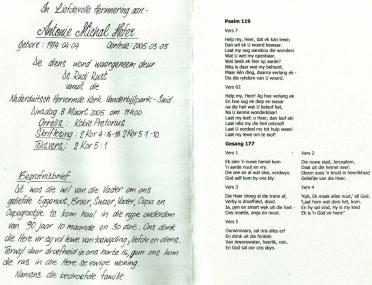 In Liefdevolle Herinnering aan-
Antonie Michal Hofer
Gebore: 1914-04-04 Oorlede: 2005-03-03
Die diens word waargeneem deur
Ds Rudi Rust
vanuit die
Nederduitsch Hervormde Kerk Vanderbijlpark-Suid
Dinsdag 8 Maart 2005 om 11h00
Orrelis: Kobie Pretorius
Skriflesing: 2 Kor 4:6-18 2 Kor 5:1-10
Teksvers: 2 Kor 5:1
Begrafnisbrief
Dit was die wil van die Vader om ons
geliefde Eggenoot, Broer, Swaer, Vader, Oupa en
Oupagrootjie te kom haal in die rype ouderdom
van 90 jaar 10 maande en 30 dae. Ons dank
die Here vir sy vol lewe van toewyding, liefde en diens.
Terwyl daar droefheid in ons harte is, gun ons hom
die rus in die Here se ewige woning.
Namens die bedroefde familie
Psalm 119
Vers 7
Help my, Heer, dat ek kan lewe;
Dan wil ek U woord bewaar.
Laat my oog aanskou die wonders
Wat U wet my openbaar.
Wat beski ek hier op aarde?
Niks is daar wat my behoort,
Maar één ding, daarna verlang ek -
Dis die rykdom van U woord.
Vers 62
Help my, Heer! Ag hoe verlang ek
En hoe sug ek diep en swaar
na die heil wat U beloof het,
Na U kennis wonderbaar!
Laat my leef; o Heer, dan loof ek!
Laat niks my die heil ontroof!
Laat U oordeel my tot hulp wees!
Laat my lewe om te loof!
Gesang 177
Vers 1
Ek sien 'n nuwe hemel kom
'n aarde nuut en vry.
Die see en al wat skei, verdwyn,
God self kom by ons bly.
Vers 2
Die nuwe stad, Jerusalem,
Daal uit die hemel neer:
Skoon soos 'n bruid in heerlikheid
Geliefde van die Heer.
Vers 3
Die Heer droog al die trane af,
Verby is droefheid, dood.
Ja, pyn en smart wyk uit die hart -
Ons moeite, angs en nood.
Vers 4
"Kyk, Ek maak alles nuut," sê God.
"Laat hom wat dors het, kom.
En hy sal vind, hy is my kind
Ek is 'n God vir hom!"
Vers 5
Oorwinnaars, sal ons alles erf
En drink uit die fontein
Van lewenswater, heerlik, rein.
En God sal oor ons skyn.